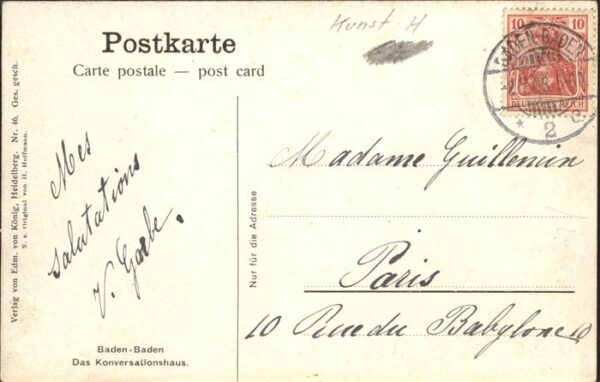 Kunst H
Postkarte
Carte postale — post card
10 10
BADEN-BADEN
DEUTSCHES REICH
* 2 c.
Verlag von Edm. von König, Heidelberg. Nr. 46. Ges. gesch.
N. e. Original von H. Hoffmann.
Mes
salutations
V.
Nur für die Adresse
Madame Guillemin
Paris
10 Rue du Babylone 10
Baden-Baden
Das Konversationshaus.